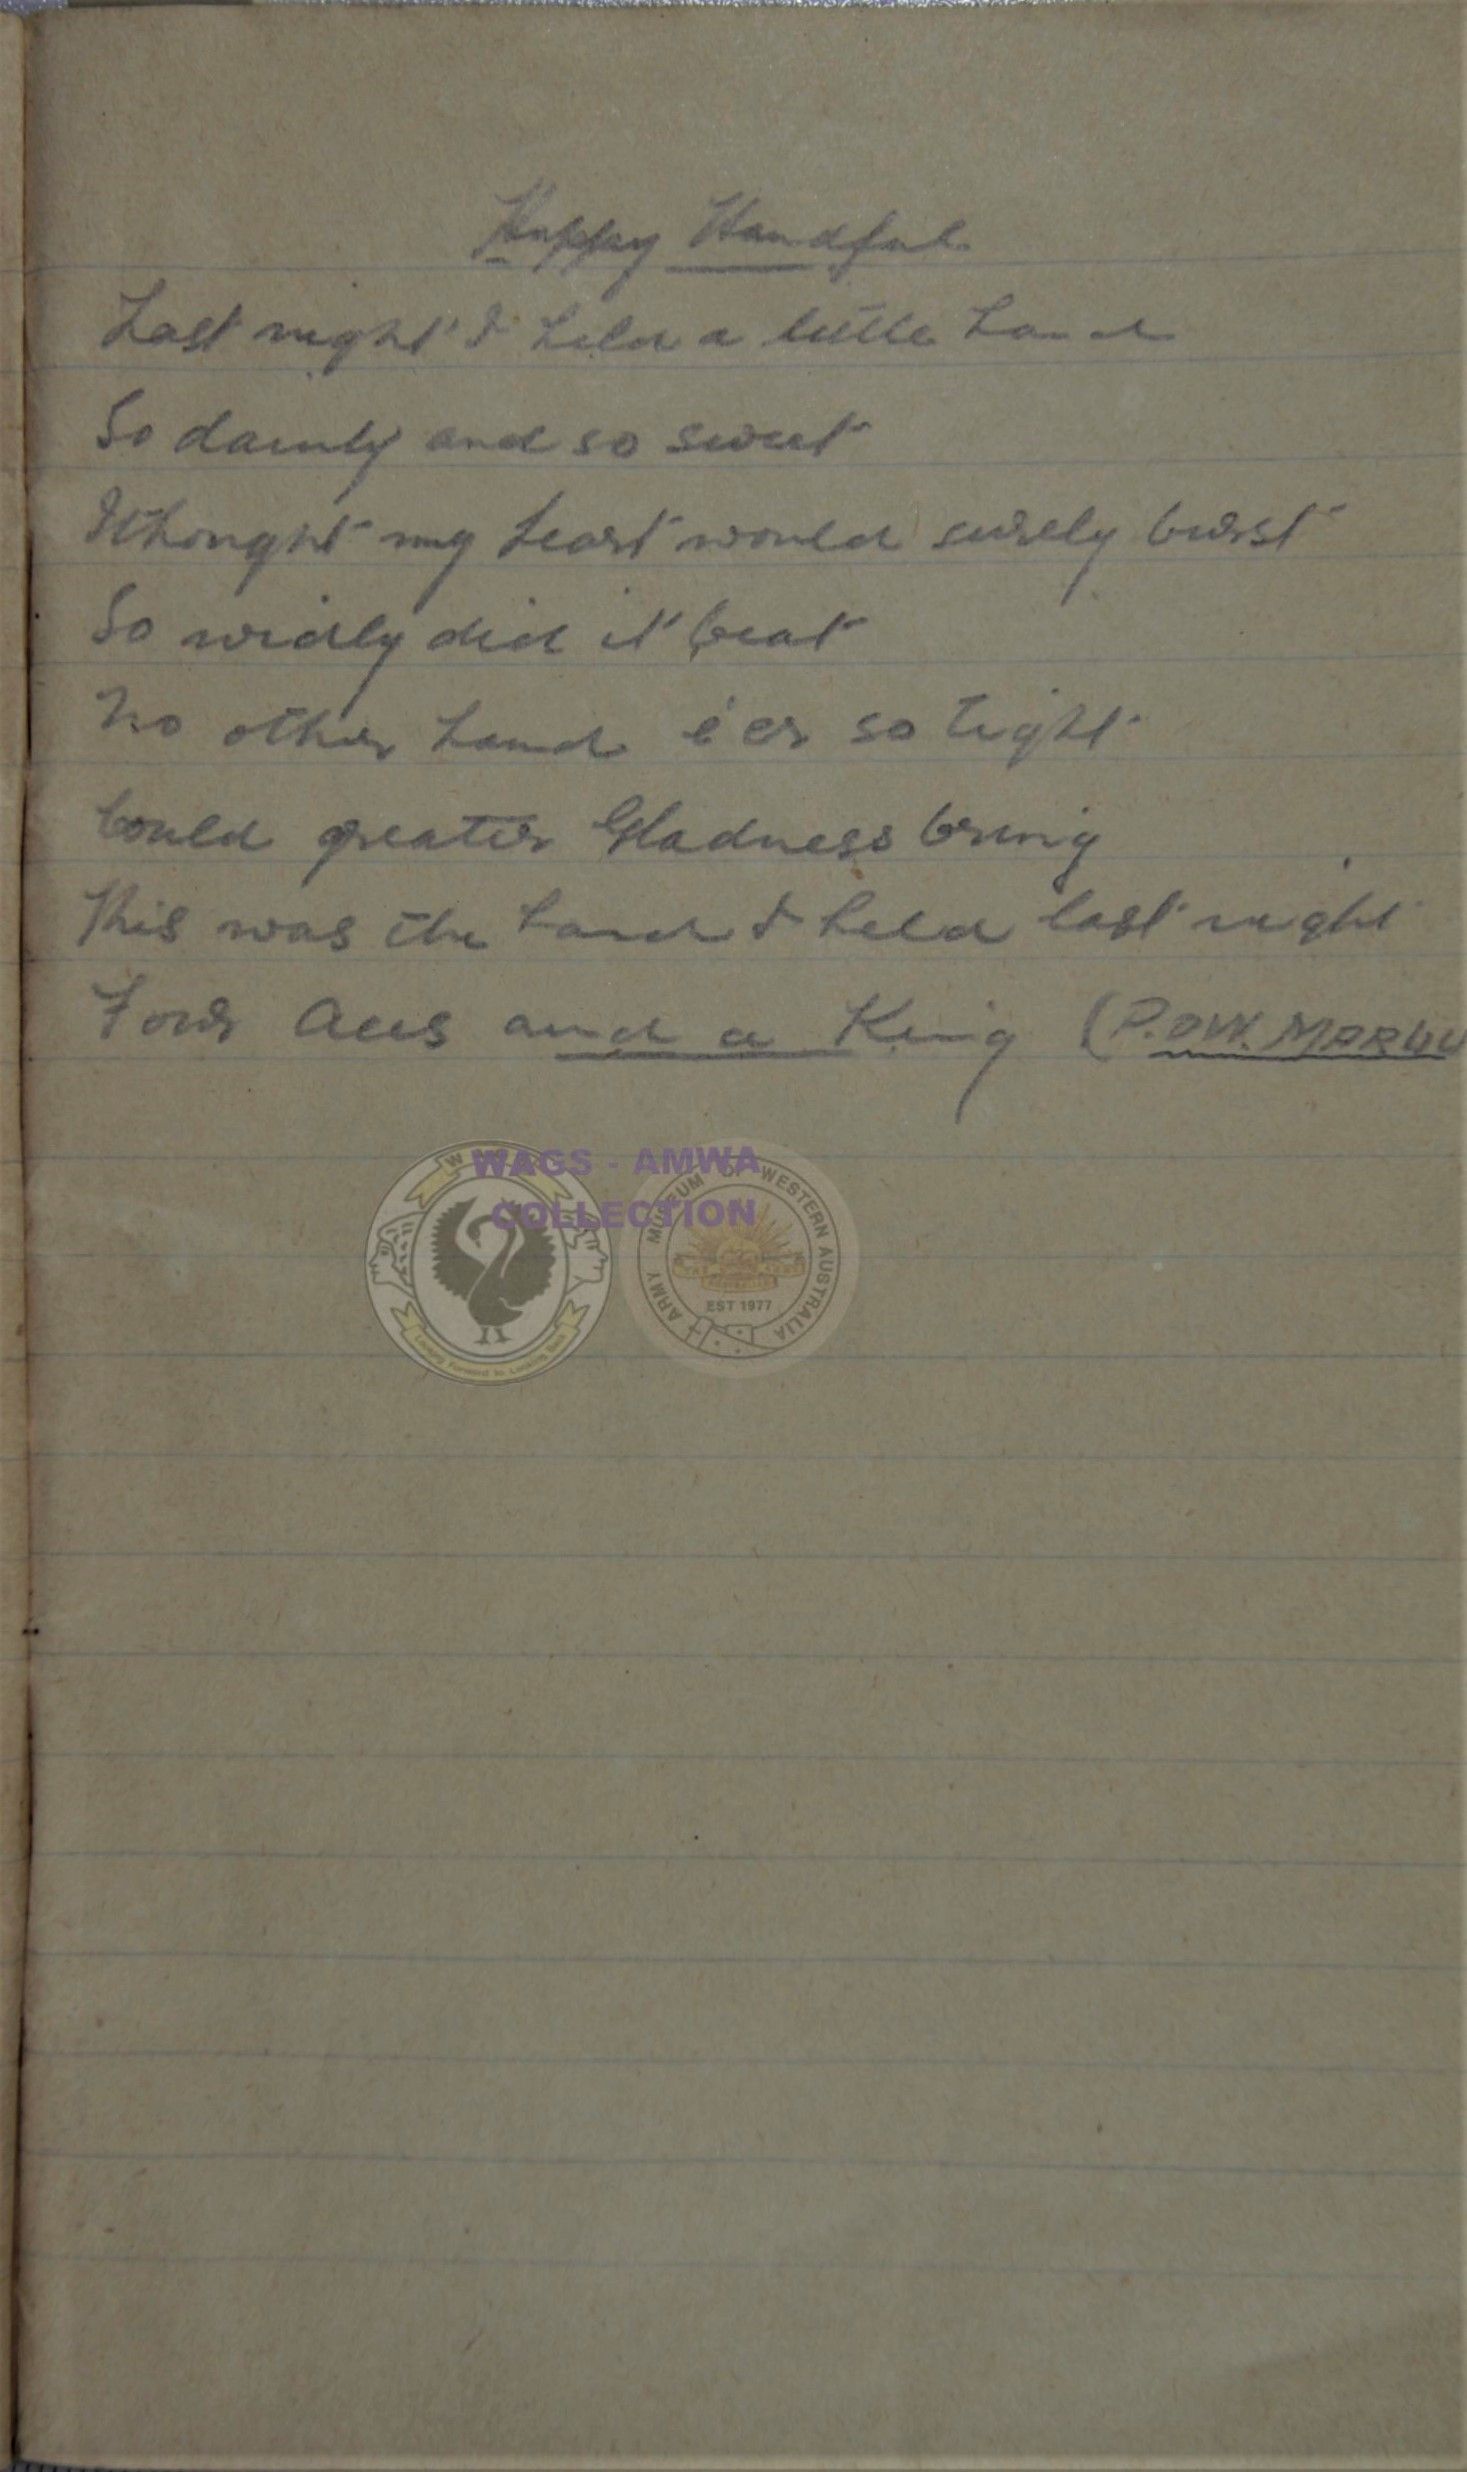 Happy Handful
Last night I held a little hand
So dainty and so sweet
I thought my heart would surely burst
So widly did it beat
No other hand e'er so tight
Could greater Gladness bring
This was the hand I held last night
Four Aces and a King (P.OW.
WAGS - AMWA
COLLECTION
ARMY MUSEUM OF WESTERN AUSTRALIA
EST 1977
Looking Forward to Looking Back